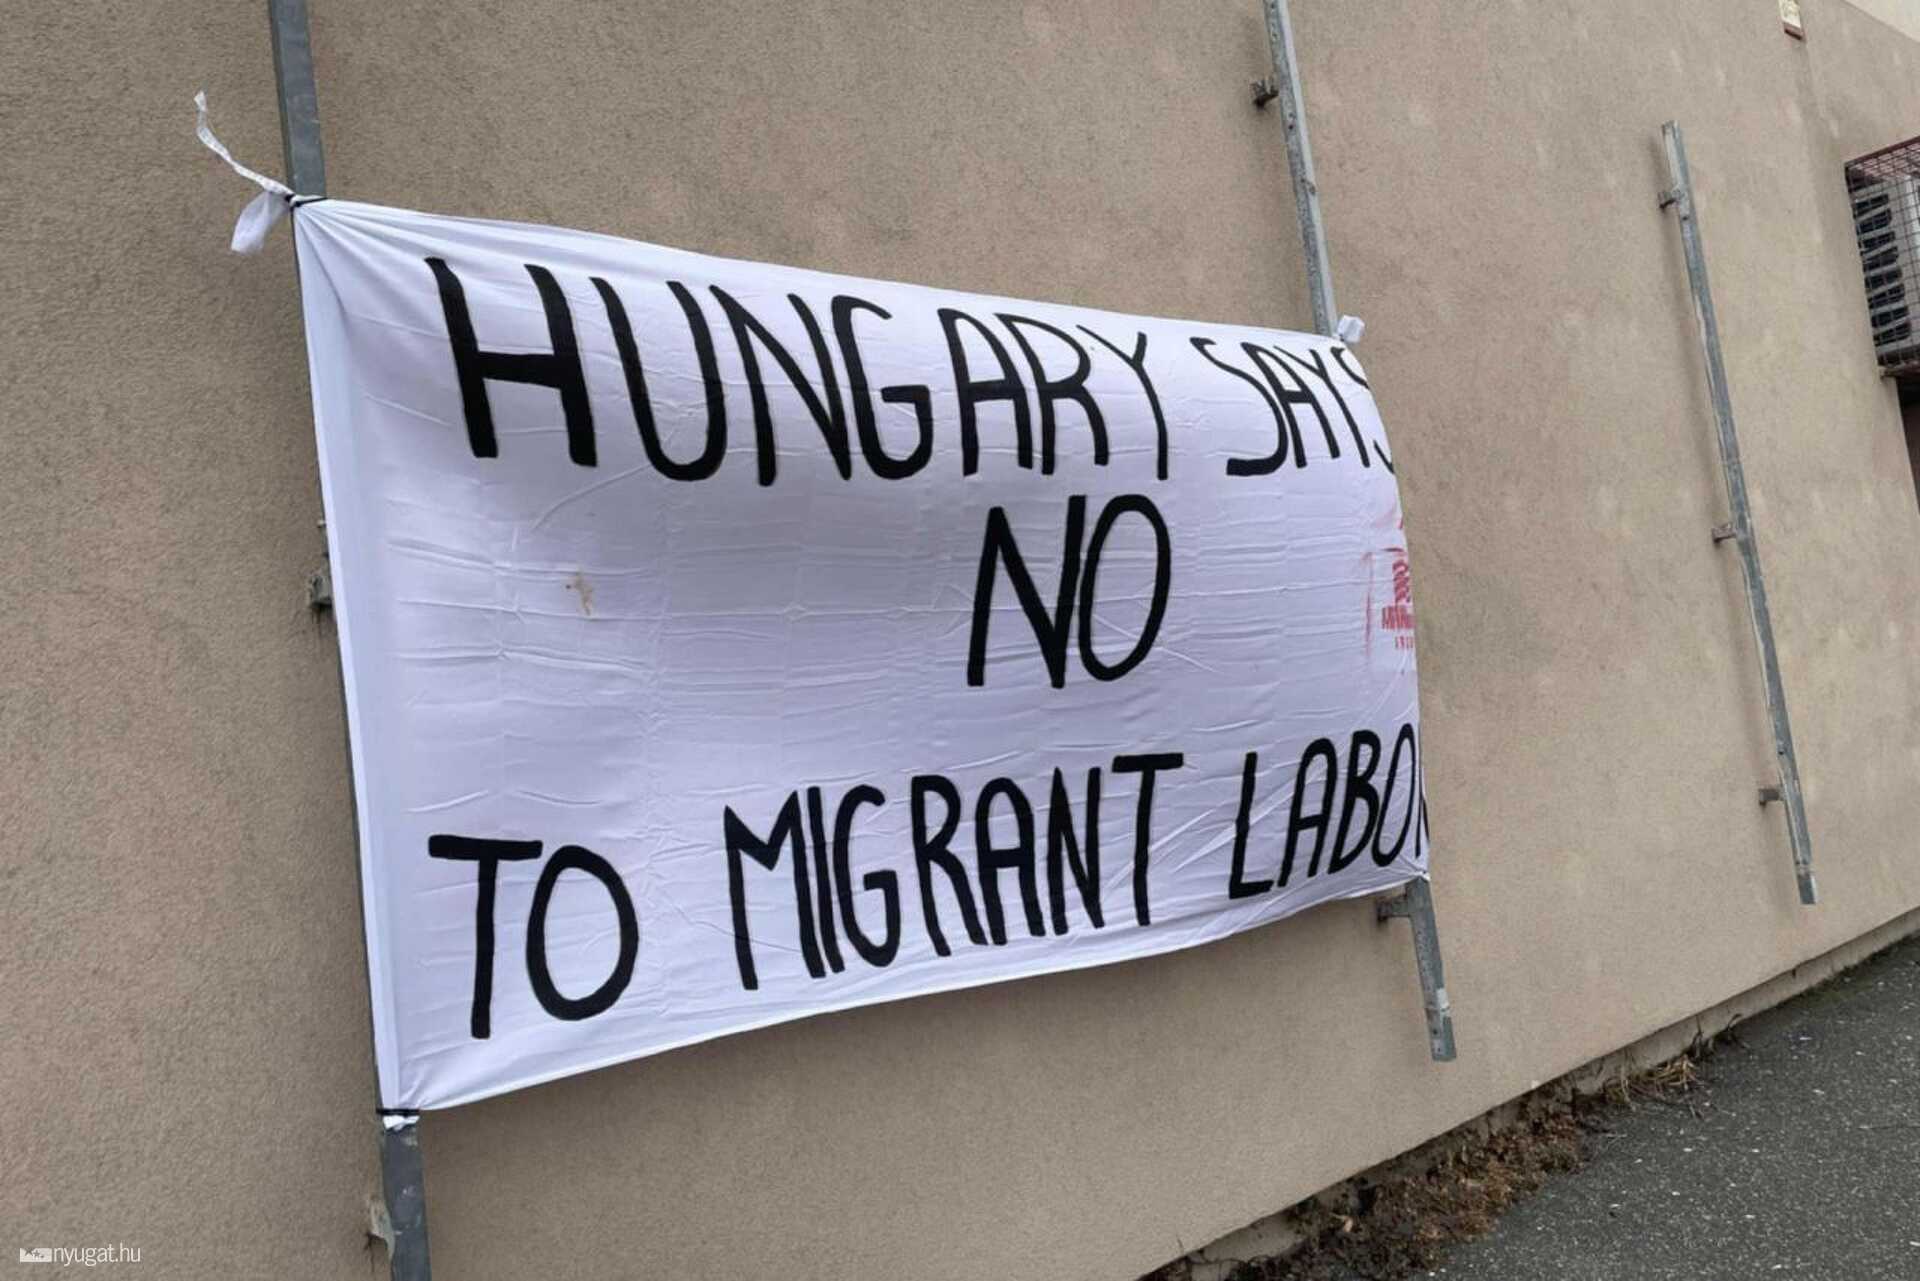 HUNGARY SAYS
NO
TO MIGRANT LABOR
nyugat.hu